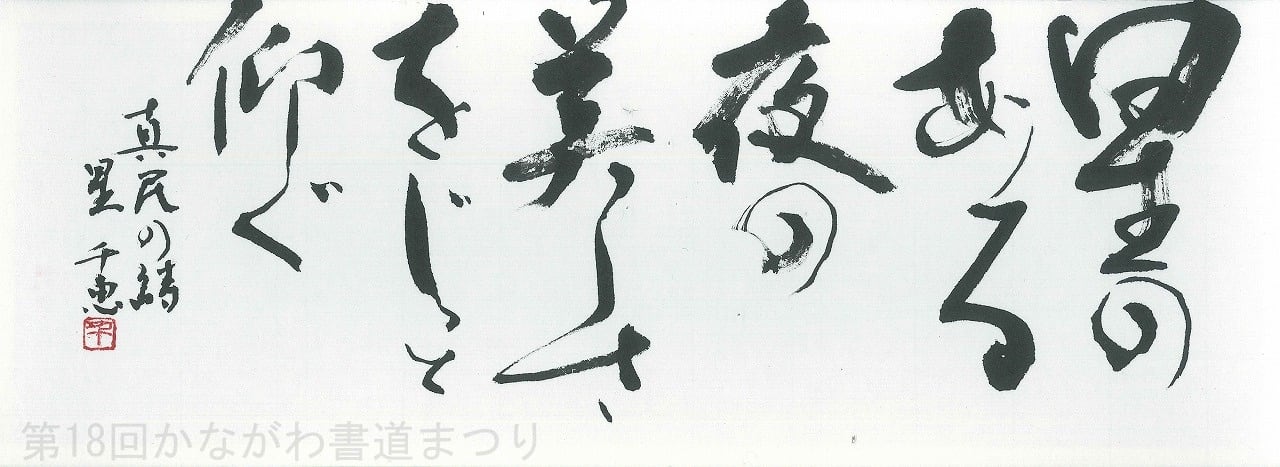 星の
ある
夜の
美しさ
をじっと
仰ぐ
真民の
星 千恵
第18回かながわ書道まつり